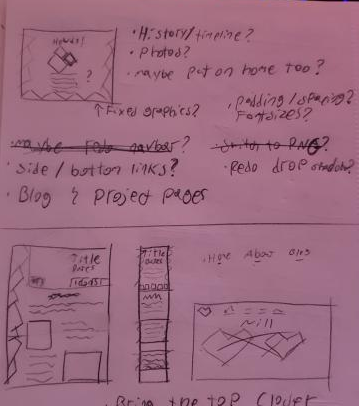 Header!
?
• History/timeline?
• Photos?
• maybe put on home too?
↑ Fixed graphics?
• Padding/spacing?
Fontsizes?
• maybe redo navbar?
• Switch to PNG?
• Side / bottom links?
• Redo drop shadow?
• Blog & Project pages
Title
Title
Home About Blog
Will
• Bring the top closer